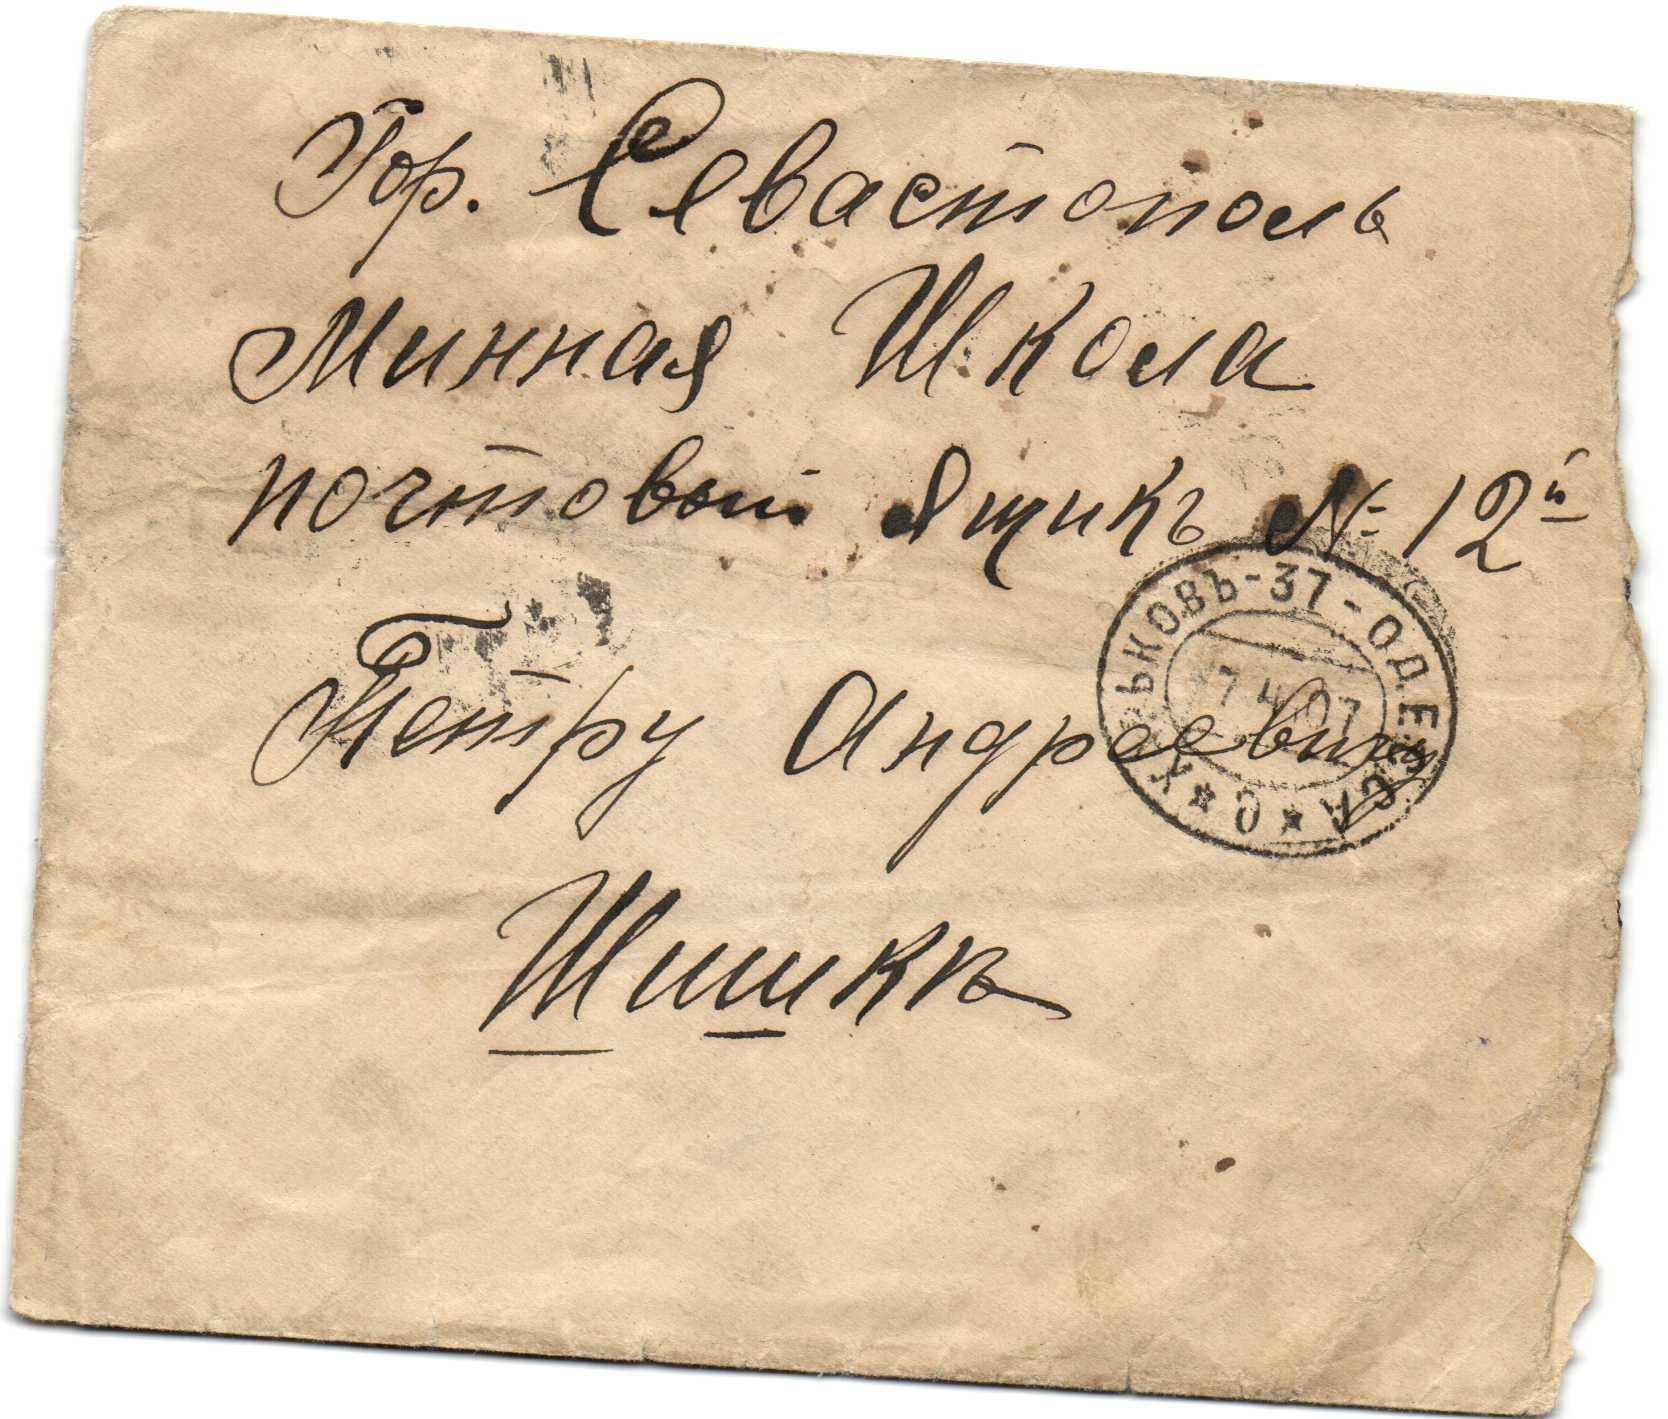 Гор. Севастополь
Минная Школа
почтовый Ящикъ № 12й
Петру Андреевичу
Шишкѣ
ХАРЬКОВЪ-37-ОДЕССА * С *
7 4 07